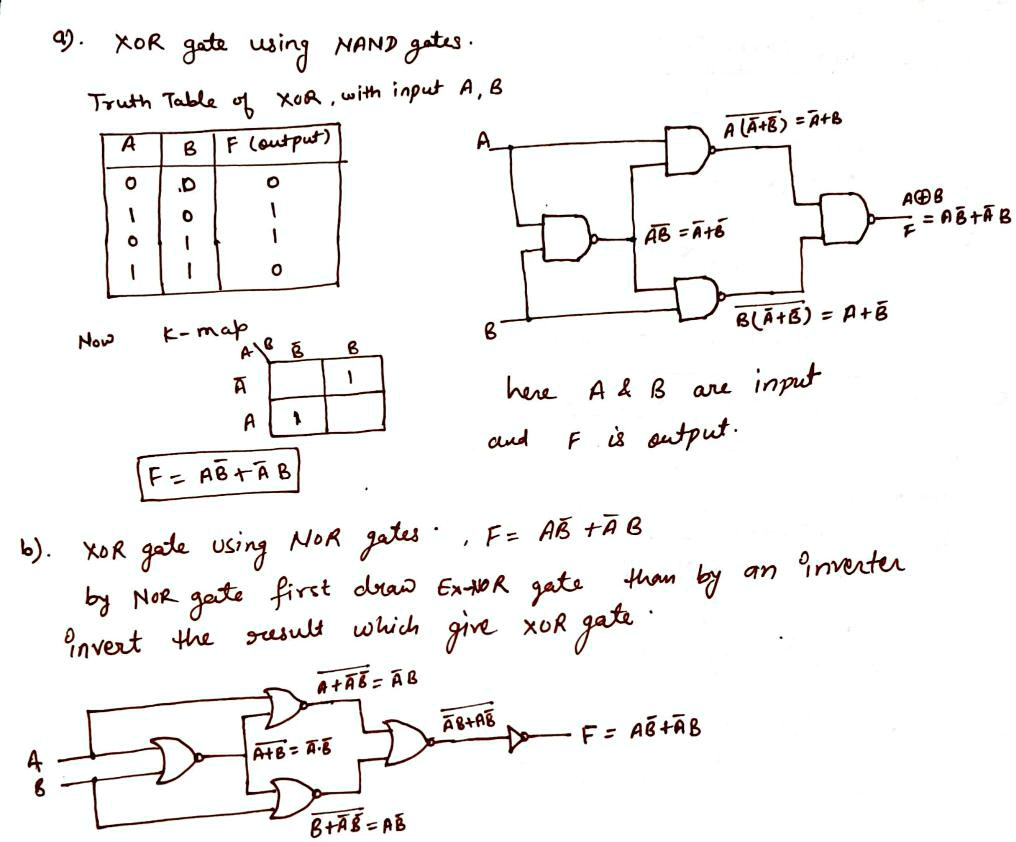 a). XOR gate using NAND gates.
Truth Table of XOR, with input A, B
A B F (output)
0 0 0
1 0 1
0 1 1
1 1 0
A
B
A̅B̅ = A̅+B̅
A(A̅+B̅)‾ = A̅+B
B(A̅+B̅)‾ = A+B̅
A⊕B
F = AB̅+A̅B
here A & B are input
and F is output.
Now K-map
A\B B̅ B
A̅ 1
A 1
F = AB̅+A̅B
b). XOR gate using NOR gates. , F = AB̅ + A̅B
by NOR gate first draw Ex-NOR gate than by an inverter
invert the result which give XOR gate.
A
B
A̅+̅B̅ = A̅·B̅
A+A̅B̅‾ = A̅B
B+A̅B̅‾ = AB̅
A̅B+AB̅‾
F = AB̅+A̅B